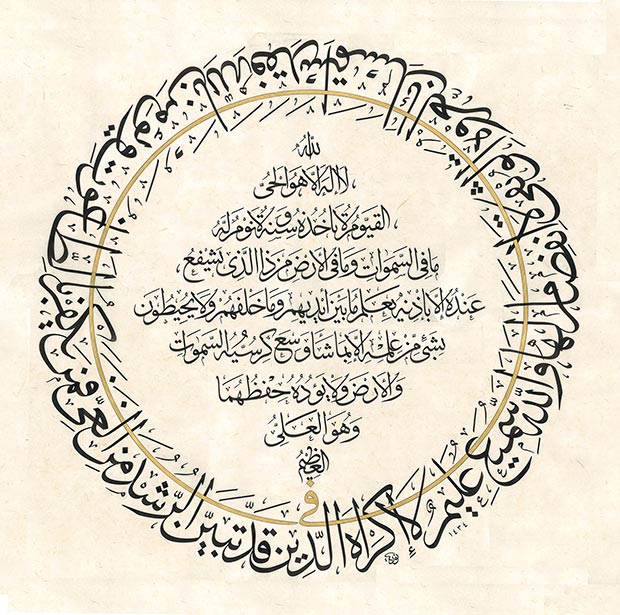 الله
لا اله الا هو الحي
القيوم لا تأخذه سنة ولا نوم له
ما في السموات وما في الارض من ذا الذي يشفع
عنده الا باذنه يعلم ما بين ايديهم وما خلفهم ولا يحيطون
بشئ من علمه الا بما شاء وسع كرسيه السموات
والارض ولا يؤده حفظهما
وهو العلي
العظيم
لا إكراه في الدين قد تبين الرشد من الغي فمن يكفر بالطاغوت ويؤمن بالله فقد استمسك بالعروة الوثقى لا انفصام لها والله سميع عليم
١٤٣٤